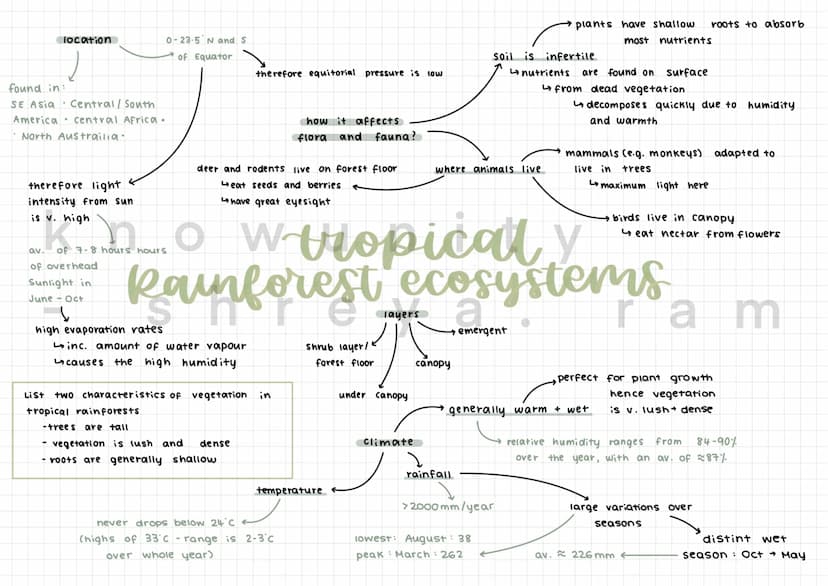 location
0-23.5°N and S
of Equator
therefore equitorial pressure is low
found in:
SE Asia · Central/South
America · Central Africa ·
· North Austrailia ·
therefore light
intensity from sun
is v. high
av. of 7-8 hours hours
of overhead
Sunlight in
June - Oct
high evaporation rates
↳ inc. amount of water vapour
↳ causes the high humidity
how it affects
flora and fauna?
soil is infertile
plants have shallow roots to absorb
most nutrients
↳ nutrients are found on surface
↳ from dead vegetation
↳ decomposes quickly due to humidity
and warmth
where animals live
deer and rodents live on forest floor
↳ eat seeds and berries
↳ have great eyesight
mammals (e.g. monkeys) adapted to
live in trees
↳ maximum light here
birds live in canopy
↳ eat nectar from flowers
knowunity
tropical
Rainforest ecosystems
- shreya.ram
layers
emergent
canopy
under canopy
shrub layer/
forest floor
List two characteristics of vegetation in
tropical rainforests
-trees are tall
- vegetation is lush and dense
- roots are generally shallow
climate
generally warm + wet
perfect for plant growth
hence vegetation
is v. lush + dense
relative humidity ranges from 84-90%
over the year, with an av. of ≈87%
rainfall
>2000mm/year
large variations over
seasons
distint wet
season: Oct → May
av. ≈ 226mm
lowest: August: 38
peak: March: 262
temperature
never drops below 24°C
(highs of 33°C - range is 2-3°C
over whole year)